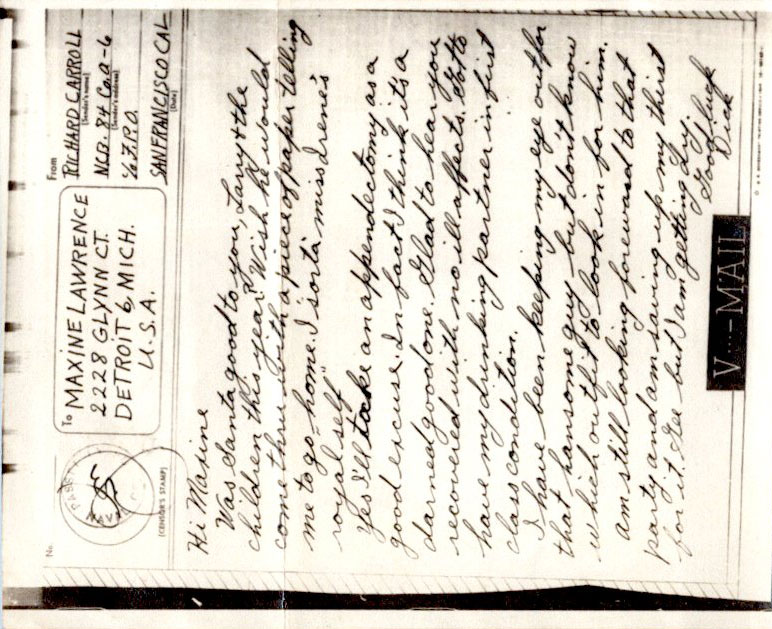 No.
(CENSOR'S STAMP)
PASSED
NAVAL
To MAXINE LAWRENCE
2228 GLYNN CT.
DETROIT 6, MICH.
U.S.A.
From
RICHARD CARROLL
(Sender's name)
NCB. 84 Co. A-6
(Sender's address)
℅ F.P.O.
SAN FRANCISCO CAL
(Date)
Hi Maxine
Was Santa good to you, Larry & the
children this year. Wish he would
come thru with a piece of paper telling
me to go home. I sorta miss Irene's
"royal self"
Yes I'll take an appendectomy as a
good excuse. In fact I think it's a
darned good one. Glad to hear you
recovered with no ill affects. Gotto
have my drinking partner in first
class condition.
I have been keeping my eye out for
that hansome guy but don't know
which outfit to look in for him.
am still looking foreward to that
party and am saving up my thirst
for it. Gee but I am getting dry.
Good luck
Dick
V...-MAIL